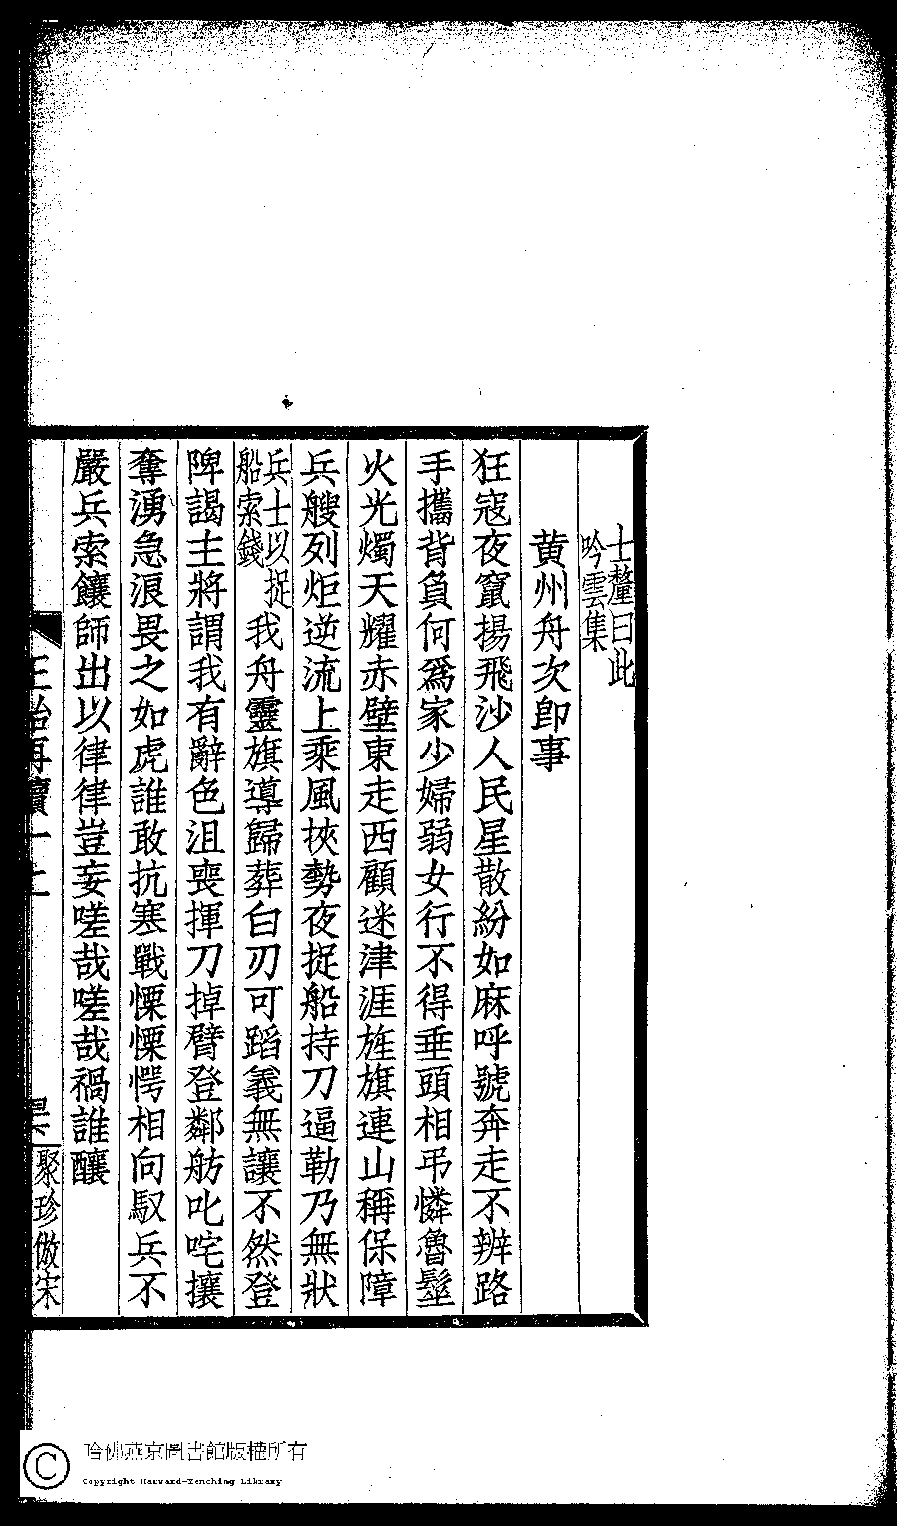 士釐曰此
吟雲集
黄州舟次卽事
狂寇夜竄揚飛沙人民星散紛如麻呼號奔走不辨路
手攜背負何爲家少婦弱女行不得垂頭相弔憐魯髽
火光燭天耀赤壁東走西顧迷津涯旌旗連山稱保障
兵艘列炬逆流上乘風挾勢夜捉船持刀逼勒乃無狀
兵士以捉
船索錢
我舟靈旗導歸葬白刃可蹈義無讓不然登
陴謁主將謂我有辭色沮喪揮刀掉臂登鄰舫叱咤攘
奪湧急浪畏之如虎誰敢抗寒戰慄慄愕相向馭兵不
嚴兵索饟師出以律律豈妄嗟哉嗟哉禍誰釀
再續一上
聚珍倣宋
哈佛燕京圖書館版權所有
Copyright Harvard-Yenching Library